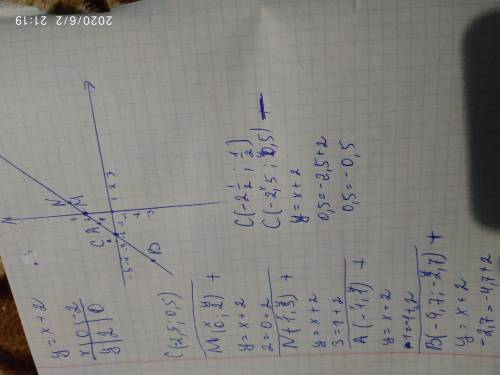 2020/6/2 21:19
y = x + 2
x | 0 | -2
y | 2 | 0
N
M
A
C
B
C(-2,5; 0,5)
M(0; 2) +
y = x + 2
2 = 0 + 2
N(1; 3) +
y = x + 2
3 = 1 + 2
A(-1; 1) +
y = x + 2
1 = -1 + 2
B(-4,7; -2,7) +
y = x + 2
-2,7 = -4,7 + 2
C(-2 1/2; 1/2)
C(-2,5; 0,5) -
y = x + 2
0,5 = -2,5 + 2
0,5 = -0,5